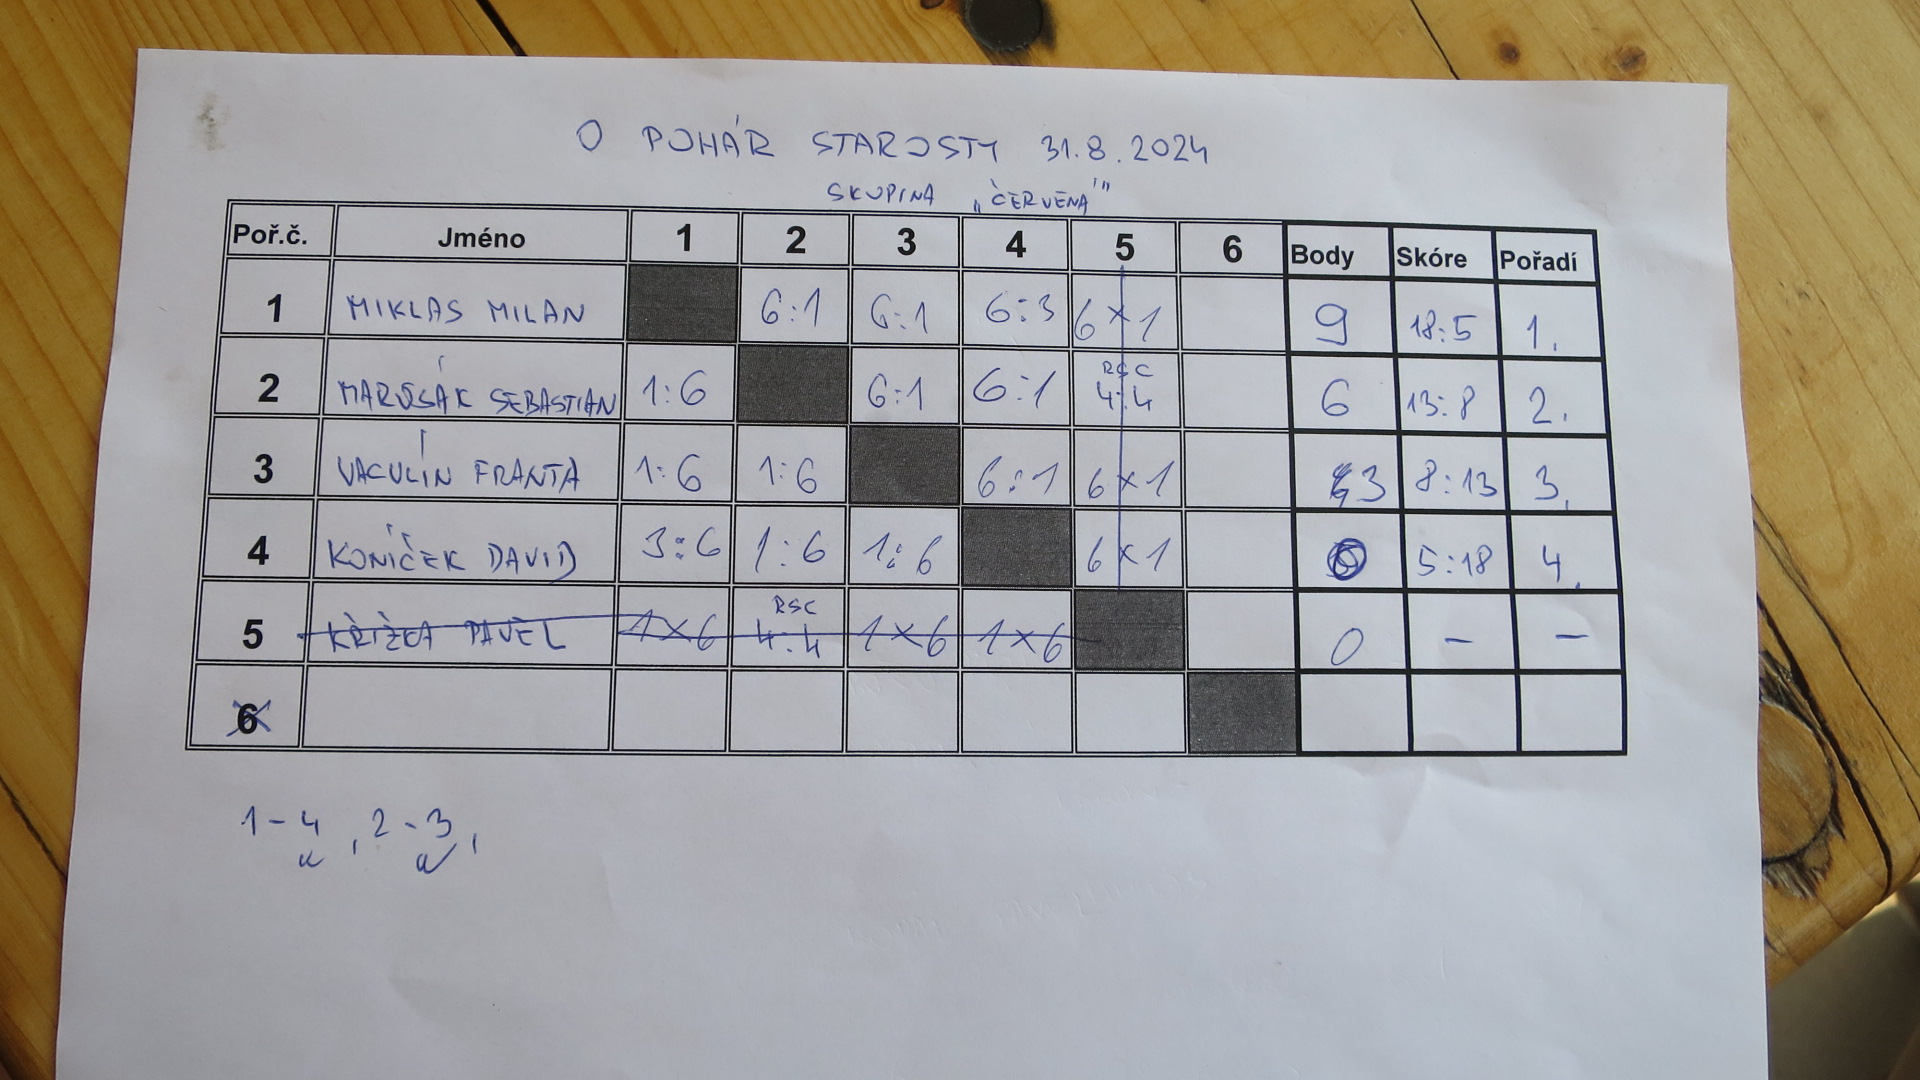 O POHÁR STAROSTY 31.8.2024
SKUPINA „ČERVENÁ"
Poř.č. Jméno 1 2 3 4 5 6 Body Skóre Pořadí
1 MIKLAS MILAN 6:1 6:1 6:3 6×1 9 18:5 1.
2 MARUSÁK SEBASTIAN 1:6 6:1 6:1 RSC 4:4 6 13:8 2.
3 VACULÍN FRANTA 1:6 1:6 6:1 6×1 3 8:13 3.
4 KONÍČEK DAVID 3:6 1:6 1:6 6×1 0 5:18 4.
5 KŘIŽKA PAVEL 1×6 RSC 4:4 1×6 1×6 0 – –
6
1-4, 2-3,